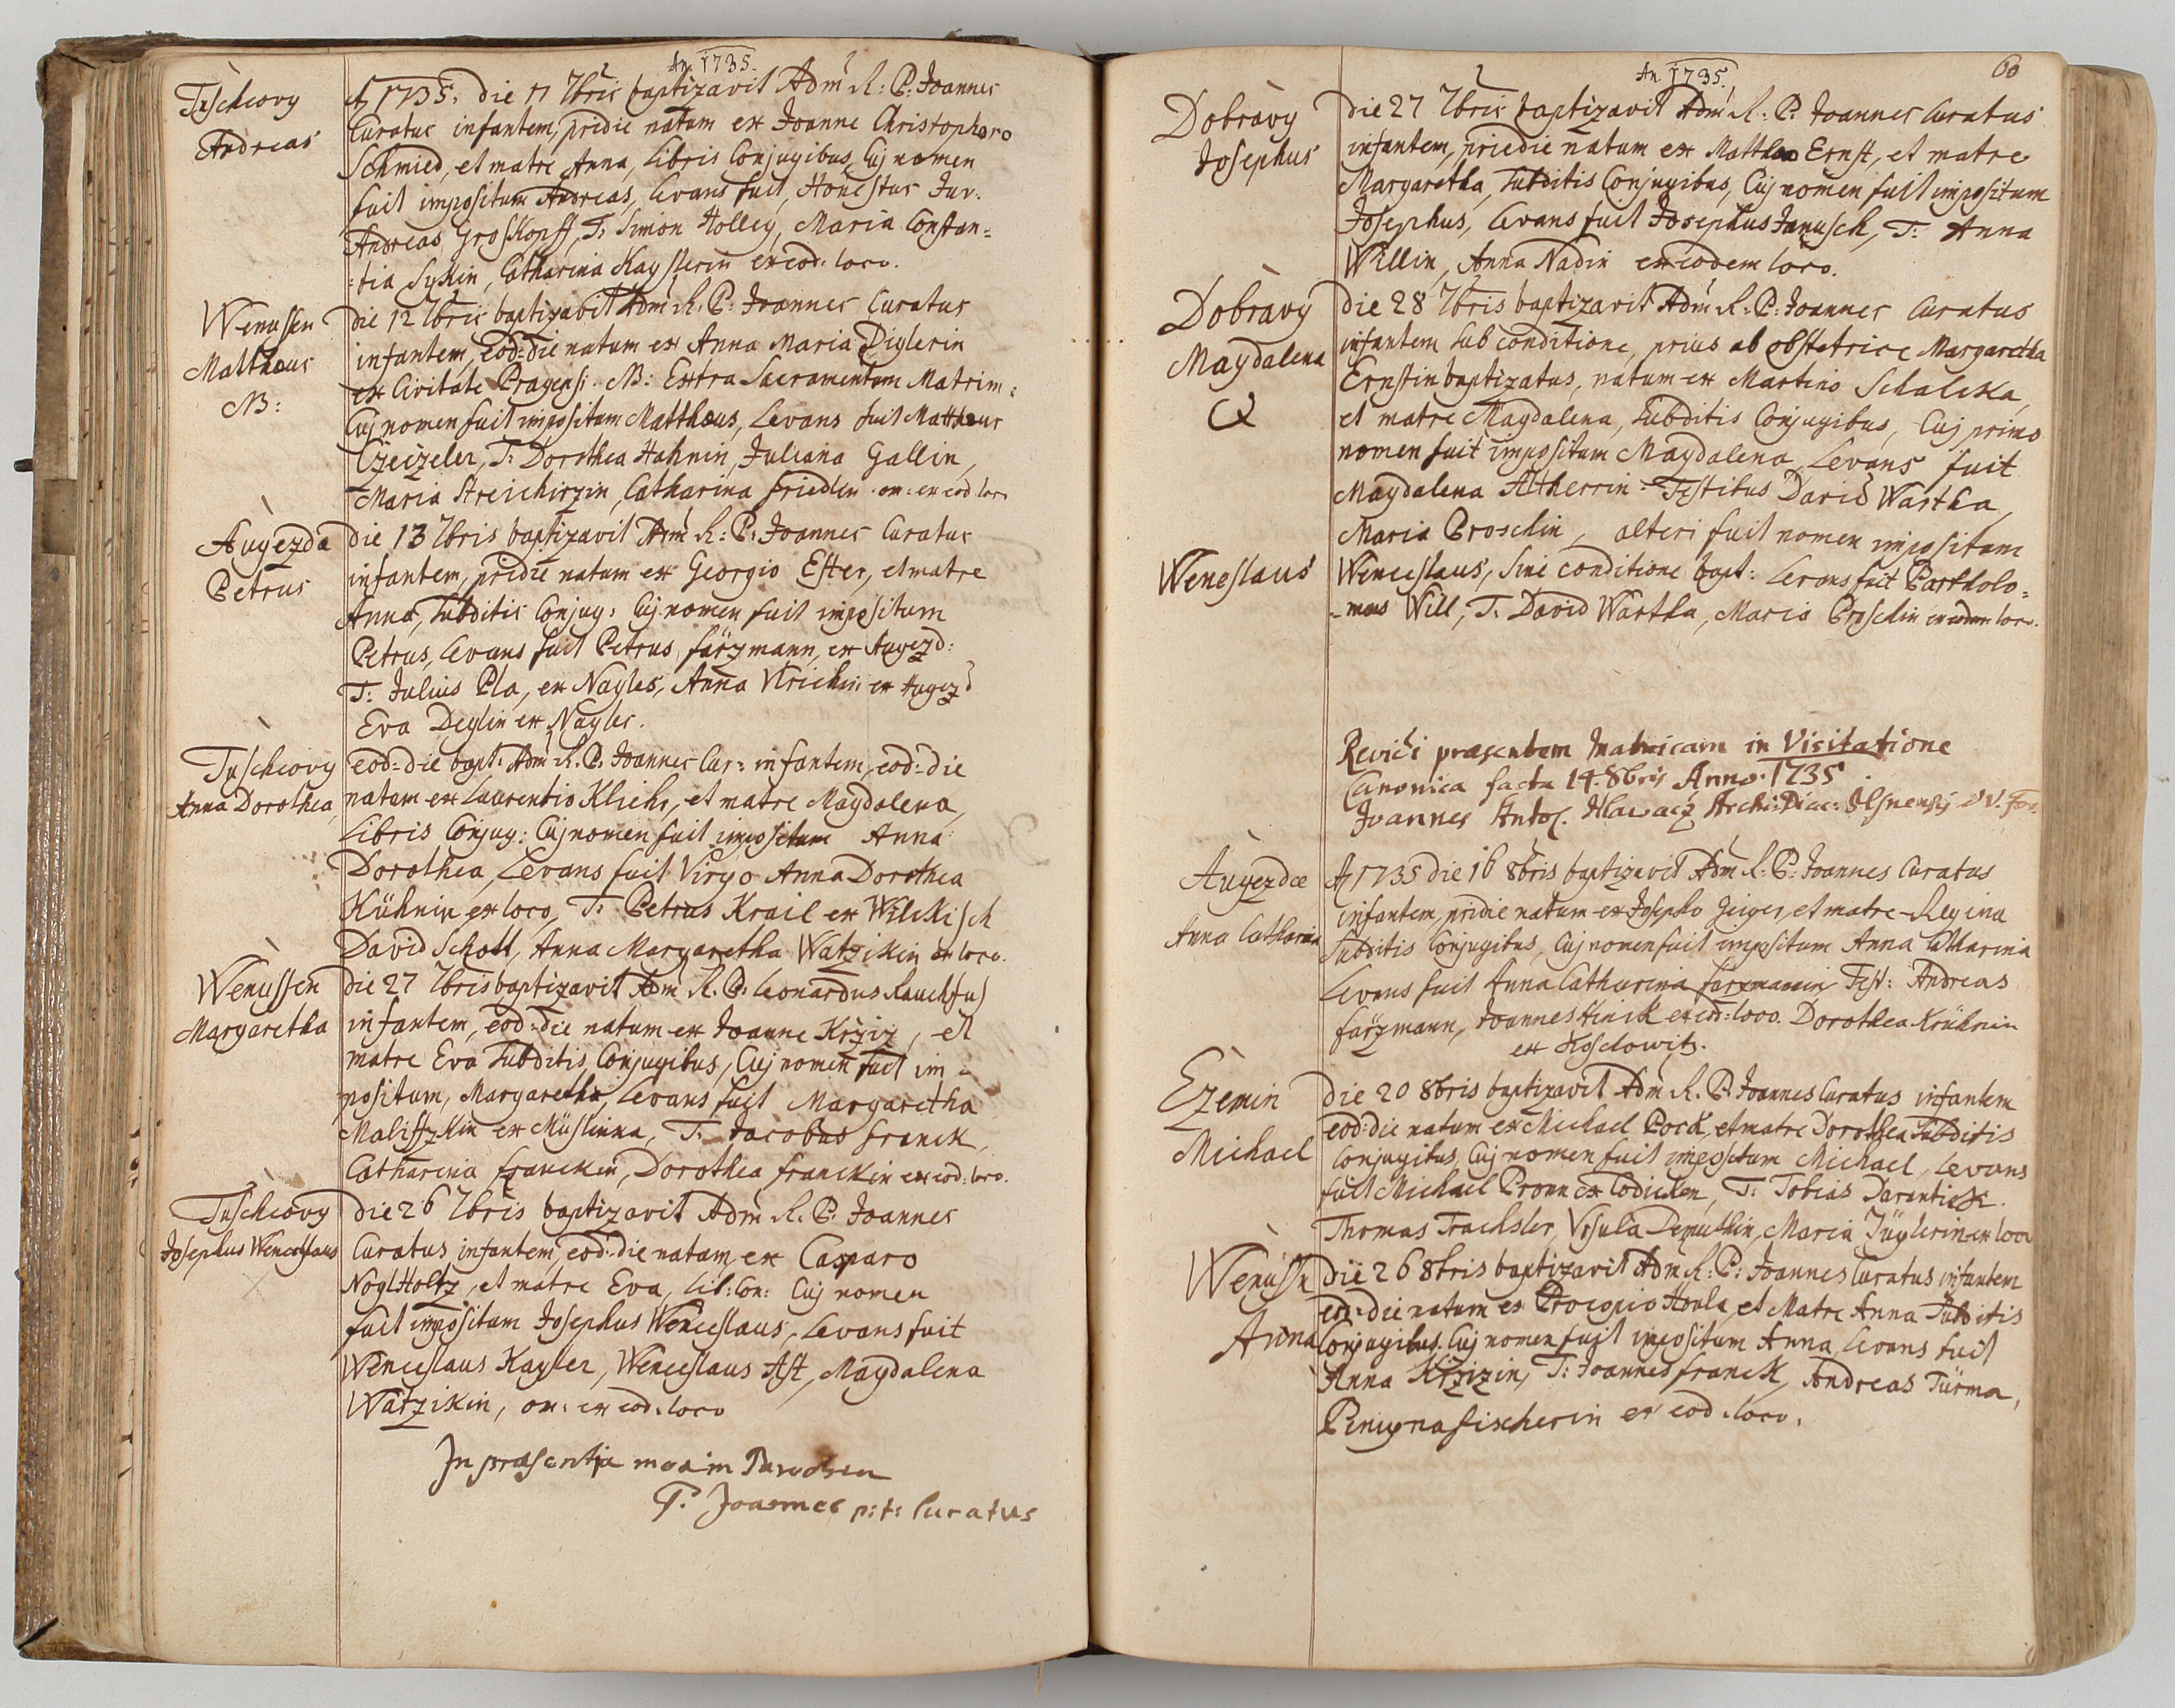 An. 1735.
Tuschcovy
Andreas
A 1735. die 11 7bris baptizavit Adm R: P: Joannes
Curatus infantem, pridie natum ex Joanne Christophoro
Schmied, et matre Anna, Libris Conjugibus, Cuj nomen
fuit impositum Andreas, Levans fuit, Honestus Juv.
Andreas Groskopff, T: Simon Holley, Maria Constan=
:tia Sykin, Catharina Kaysserin ex eod: loco.
Wenussen
Mattheus
NB:
die 12 7bris baptizavit Adm R. P: Joannes Curatus
infantem, eod: die natum ex Anna Maria Diglerin
ex Civitate Pragensi. NB: Extra Sacramentum Matrim:
Cuj nomen fuit impositum Mattheus, Levans fuit Mattheus
Czeizeler, T: Dorothea Hahnin, Juliana Gallin,
Maria Streichirzin, Catharina Friedlin om: ex eod loco
Augezda
Petrus
die 13 7bris baptizavit Adm R: P: Joannes Curatus
infantem, pridie natum ex Georgio Ester, et matre
Anna, Subditis Conjug: Cuj nomen fuit impositum
Petrus, Levans fuit Petrus Färzmann, ex Augezd:
T: Julius Pla, ex Nagles, Anna Ulrichin ex Augezd
Eva Deglin ex Nagles.
Tuschcovy
Anna Dorothea
eod: die bapt: Adm R. P. Joannes Cur: infantem, eod: die
natam ex Laurentio Kliehr, et matre Magdalena,
Libris Conjug: Cuj nomen fuit impositum Anna
Dorothea, Levans fuit Virgo Anna Dorothea
Kühnin ex loco, T: Petrus Krail ex Wilckisch
David Schott, Anna Margaretha Watzikin ex loco.
Wenussen
Margaretha
die 27 7bris baptizavit Adm R. P. Leonardus Rauchfus
infantem, eod: die natum ex Joanne Krziz, et
matre Eva Subditis, Conjugibus, Cuj nomen fuit im=
positum, Margaretha, Levans fuit Margaretha
Maliffzkin ex Müslinna, T: Jacobus Franck,
Catharina Franckin, Dorothea Franckin ex eod: loco.
Tuschcovy
Josephus Wenceslaus
die 26 7bris baptizavit Adm R. P: Joannes
Curatus infantem, eod: die natum ex Casparo
Noglholtz, et matre Eva, Lib: Con: Cuj nomen
fuit impositum Josephus Wenceslaus, Levans fuit
Wenceslaus Kayler, Wenceslaus Ast, Magdalena
Watzikin, om: ex eod: loco
In praesentia
P. Joannes p: t: Curatus
An. 1735.
60
Dobravy
Josephus
die 27 7bris baptizavit Adm R. P: Joannes Curatus
infantem, priedie natum ex Mattheo Ernst, et matre
Margaretha, Subditis Conjugibus, Cuj nomen fuit impositum
Josephus, Levans fuit Josephus Janusch, T: Anna
Willin, Anna Nadin ex eodem loco.
Dobravy
Magdalena
die 28 7bris baptizavit Adm R: P: Joannes Curatus
infantem sub conditione, prius ab obstetrice Margaretha
Ernstin baptizatus, natum ex Martino Schalcka,
et matre Magdalena, Subditis Conjugibus, Cuj primo
nomen fuit impositum Magdalena, Levans fuit
Magdalena Altherrin. Testibus David Wartha,
Maria Proschin, alteri fuit nomen impositum
Weneslaus
Wenceslaus, sine conditione bapt: Levans fuit Bartholo=
=mus Will, T: David Wartha, Maria Proschin ex eodem loco.
Revidi praesentem Matricam in Visitatione
Canonica facta 14. 8bris Anno. 1735
Joannes Anto. Hlawacz Archi:Diac: Plsnensis
Augezdae
Anna Catharina
A 1735 die 16 8bris baptizavit Adm R: P: Joannes Curatus
infantem, pridie natum ex Josepho Geiger, et matre Regina
Subditis Conjugibus, Cuj nomen fuit impositum Anna Catharina
Levans fuit Anna Catharina Farzmanin Test: Andreas
Färzmann, Joannes Hinik ex eod: loco. Dorothea Krühnin
ex Koslowitz.
Ezemin
Michael
Die 20 8bris baptizavit Adm R. P. Joannes Curatus infantem
eod: die natum ex Michael Pock, et matre Dorothea Subditis
Conjugibus, Cuj nomen fuit impositum Michael, Levans
fuit Michael Pronn ex Lodicken, T: Tobias Darantick.
Thomas Trachsler, Vrsula Demuthin, Maria Jüglerin ex loco
Wenussn
Anna
Die 26 8bris baptizavit Adm R: P: Joannes Curatus infantem
eod: die natum ex Procopio Houla, et Matre Anna Subditis
Conjugibus. Cuj nomen fuit impositum Anna, Levans fuit
Anna Krzizin, T: Joannes Franck, Andreas Türma,
Penigna Fischerin ex eod: loco.